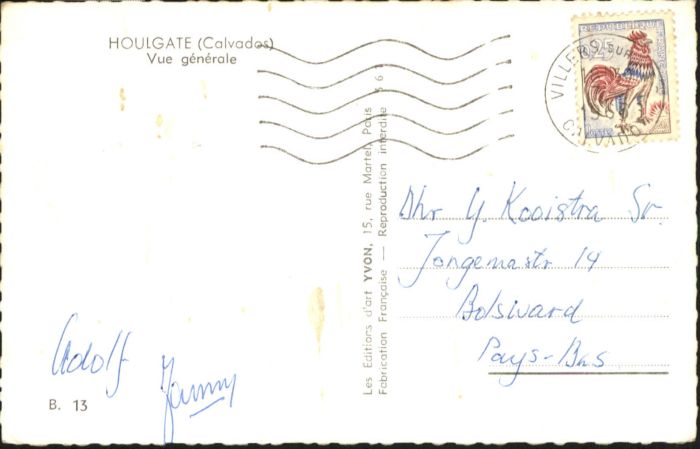 HOULGATE (Calvados)
Vue générale
VILLERS SUR
CALVADOS
Dhr Y. Kooistra Sr.
Jongemastr 14
Bolsward
Pays-Bas
Adolf
B. 13
Les Editions d'art YVON, 15, rue Martel, Paris
Fabrication Française — Reproduction interdite